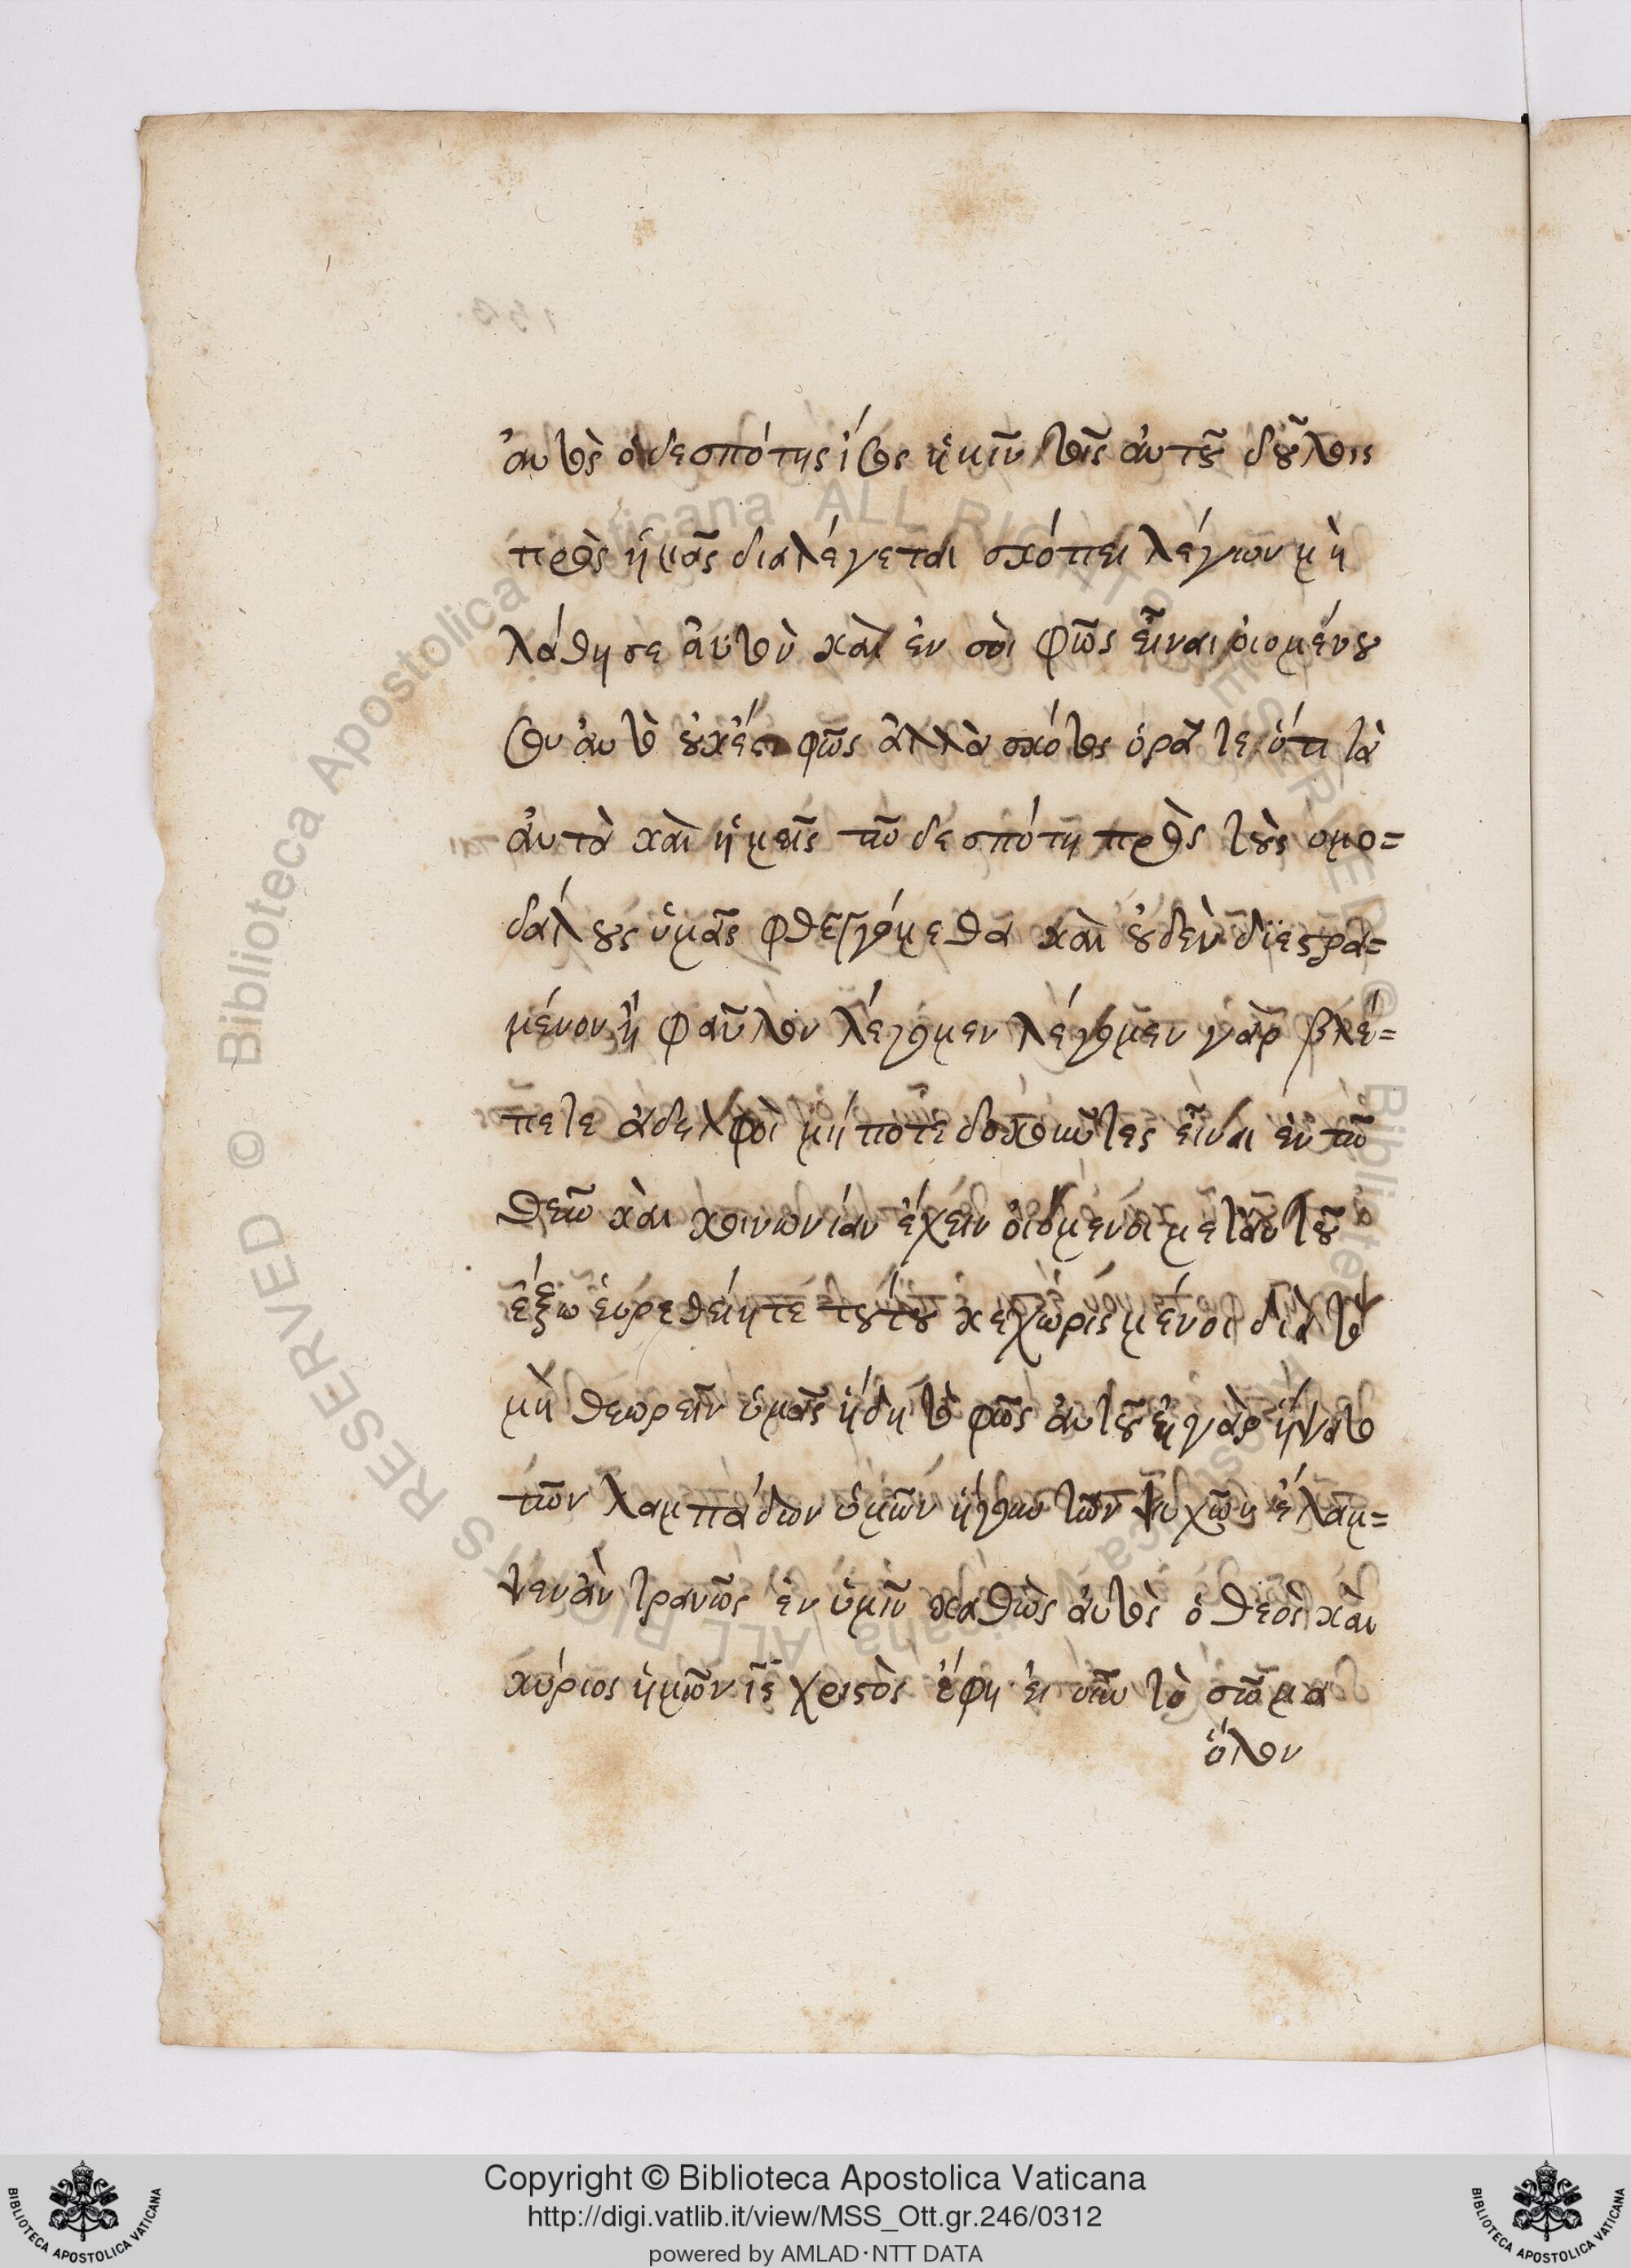 ἀυτὸς ὁ δεσπότης ἰ̈σος ἡμῖν τοῖς ἀυτοῦ δούλοις
πρὸς ἡμᾶς διαλέγεται σκόπει λέγων μὴ
λάθησε ἀυτὸν καὶ ἐν σοὶ φῶς εἶναι ὀιομένου
σου ἀυτὸ ὀυκέστι φῶς ἀλλὰ σκότος ὁρᾶτε ὅτι τὰ
ἀυτὰ καὶ ἡμεῖς τῶ δεσπότη πρὸς τοὺς ομο=
δούλους ὑμᾶς φθεγγόμεθα καὶ ὀυδὲν διεστρα=
μένον ἢ φαῦλον λέγομεν λέγομεν γὰρ βλέ=
πετε ἀδελφοὶ μήποτε δοκοῦντες εἶναι ἐν τῶ
θεῶ καὶ κοινωνίαν ἔχειν ὀιόμενοι μετἀυτοῦ
ἔξω ἑυρεθείητε τούτου κεχωρισμένοι διὰ τὸ
μὴ θεωρεῖν ὑμᾶς ἤδη τὸ φῶς ἀυτοῦ ἐι γὰρ ἥψατο
τῶν λαμπάδων ὑμῶν ἤγουν τῶν ψυχῶν ἔλαμ=
ψεν ἂν τρανῶς ἐν ὑμῖν καθὼς ἀυτὸς ὁ θεὸς καὶ
κύριος ἡμῶν ι̅ς̅ χριστὸς ἔφη ἐι οὖν τὸ σῶμα
ὅλον
Copyright © Biblioteca Apostolica Vaticana
http://digi.vatlib.it/view/MSS_Ott.gr.246/0312
powered by AMLAD·NTT DATA
BIBLIOTECA APOSTOLICA VATICANA
BIBLIOTECA APOSTOLICA VATICANA